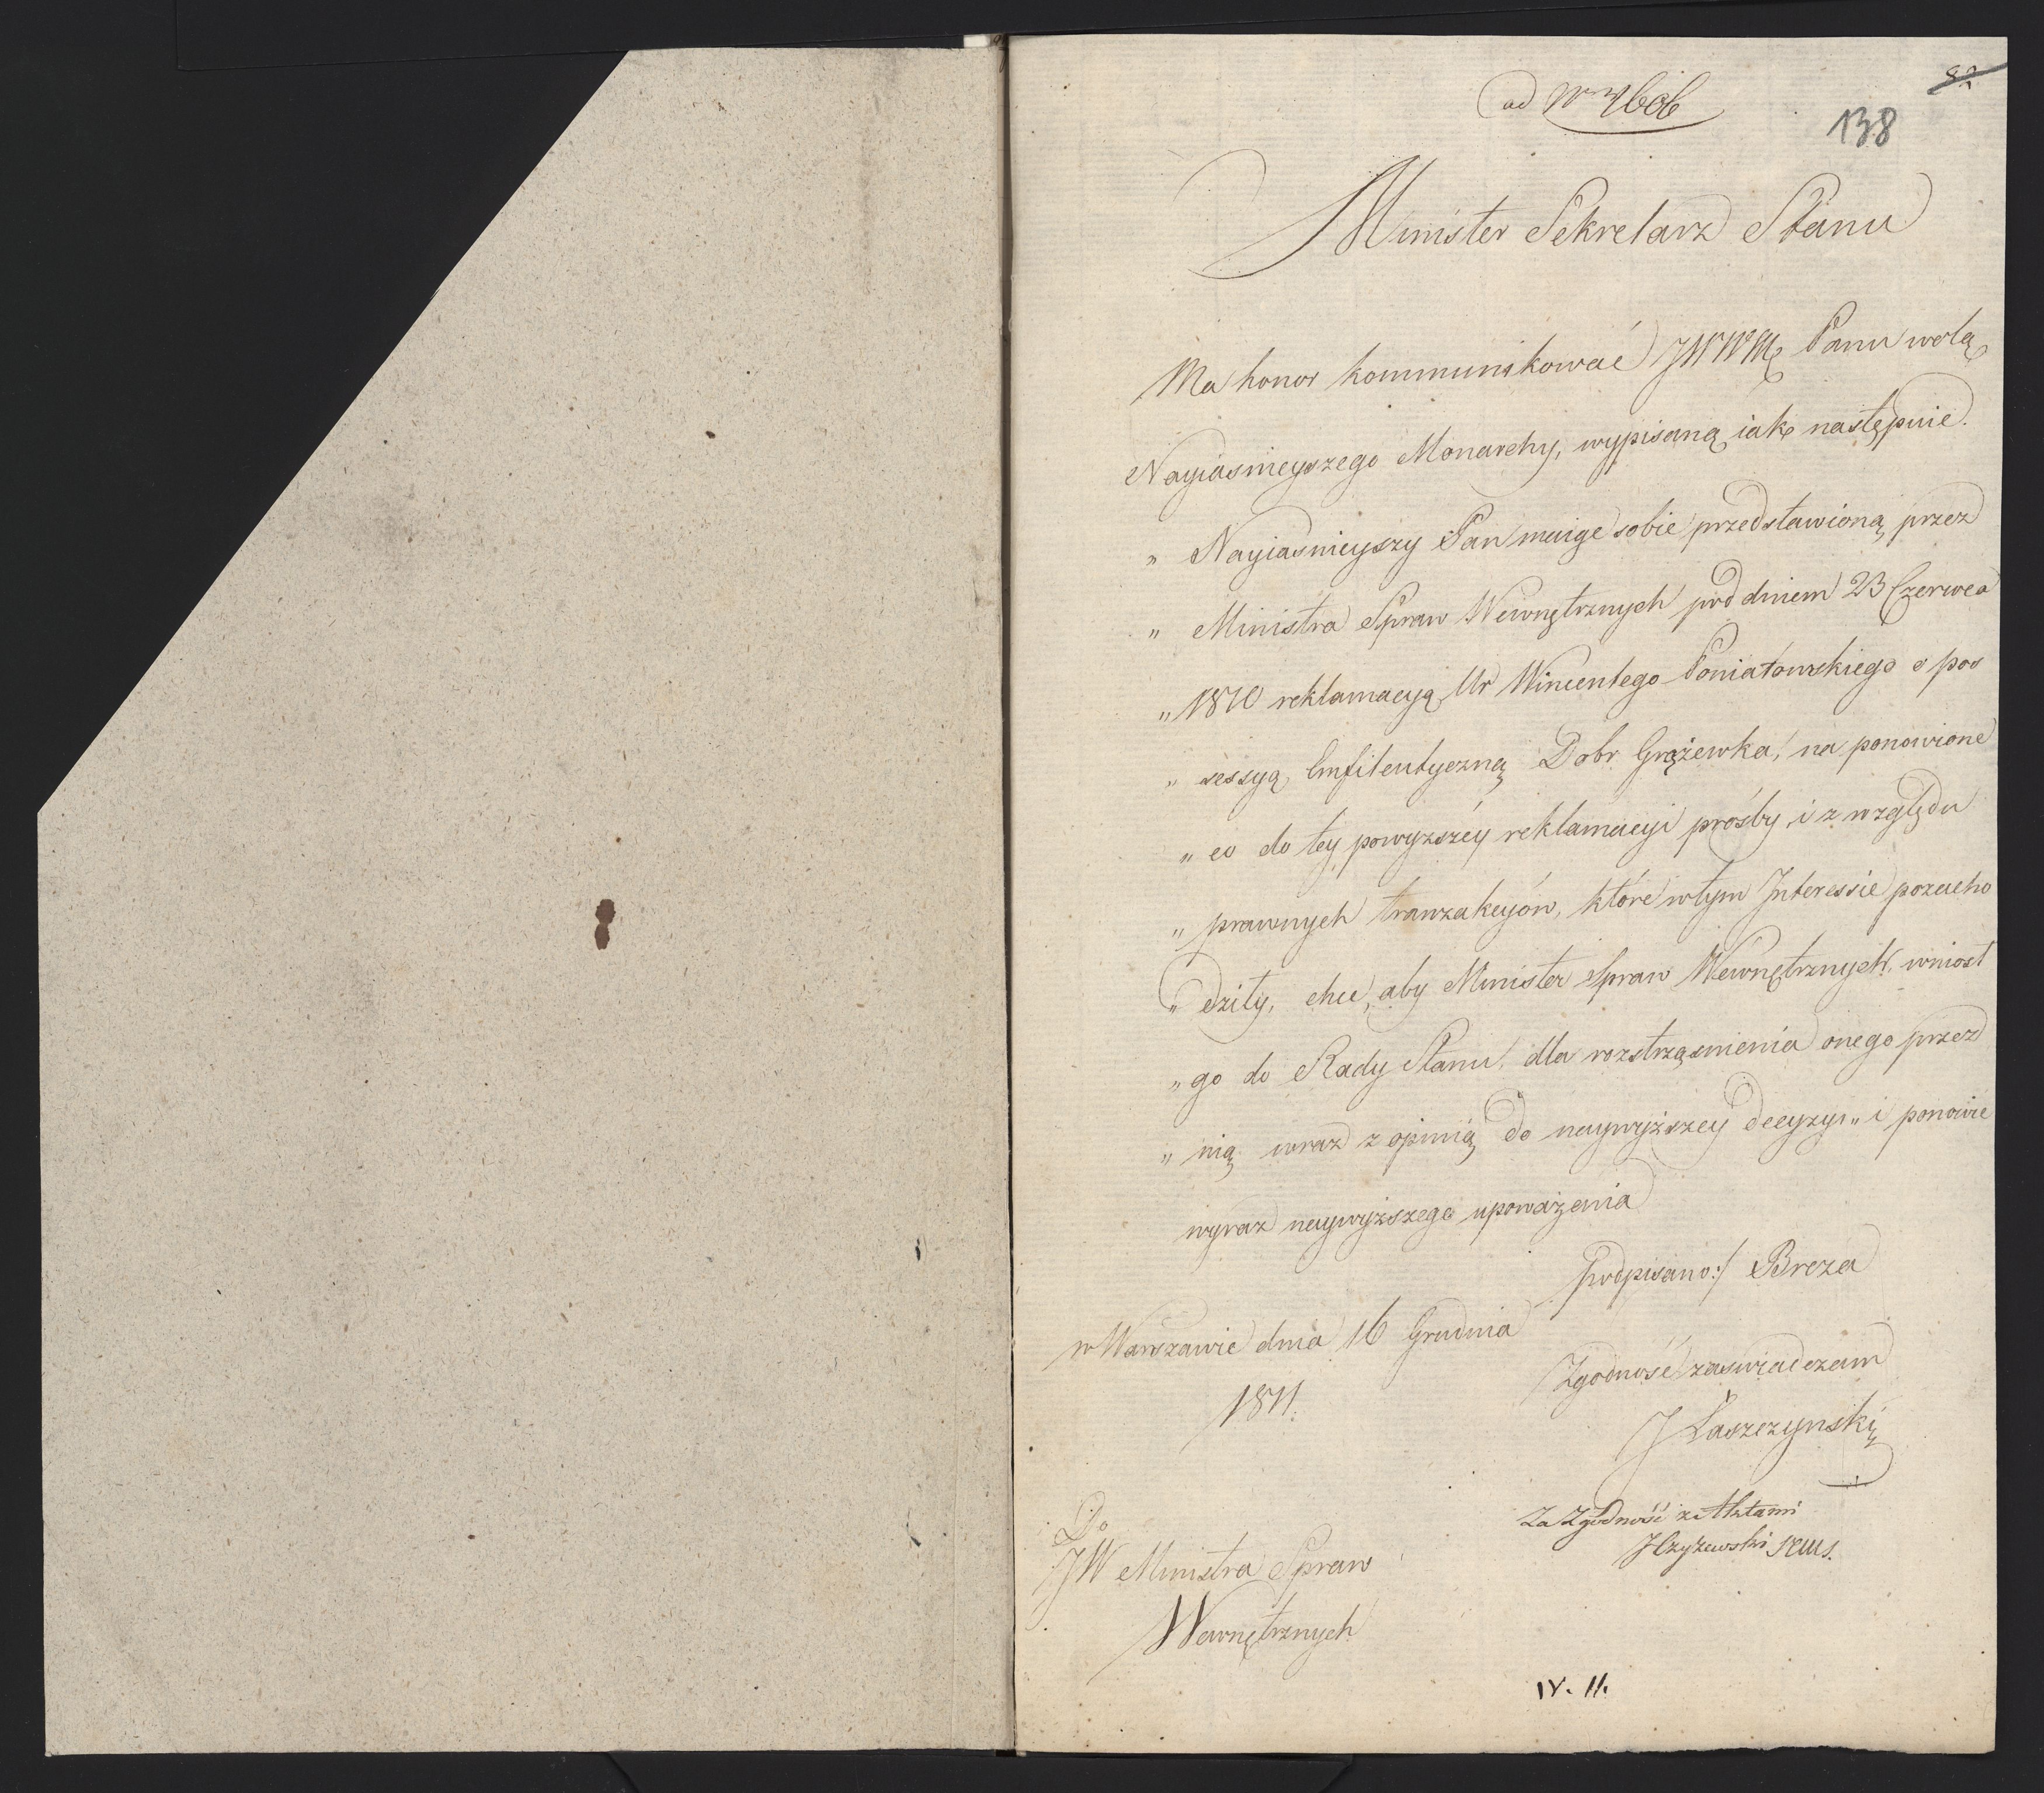 ad Nr
82
138
Minister Sekretarz Stanu
Ma honor kommunikować JWWMę Panu wolą
Nayiasnieyszego Monarchy, wypisaną iak następuie.
„ Nayiasnieyszy Pan maiąc sobie przedstawioną przez
„ Ministra Spraw Wewnętrznych pod dniem 23 Czerwca
„ 1810 reklamacyą Ur Wincentego Poniatowskiego o pos
„ sessyą Emfiteutyczną Dobr Grążewka, na ponowione
„ co do tey powyzszéy reklamacyi prośby, i z względu
„ prawnych tranzakcyów, które wtym Interessie pozacho
„ dziły, chce, aby Minister Spraw Wewnętrznych, wniosł
„ go do Rady Stanu, dla rozstrząsnienia onego przez
„ nią wraz z opinią do naywyższey decyzyi „ i ponowie
wyraz naywyższego upoważenia
podpisano:/ Breza
w Warszawie dnia 16 Grudnia
1811.
Zgodność zaswiadczam
J Łaszczynski
Za Zgodność z Aktami
J Czyżewski
Do
JW Ministra Spraw
Wewnętrznych
IV. 11.